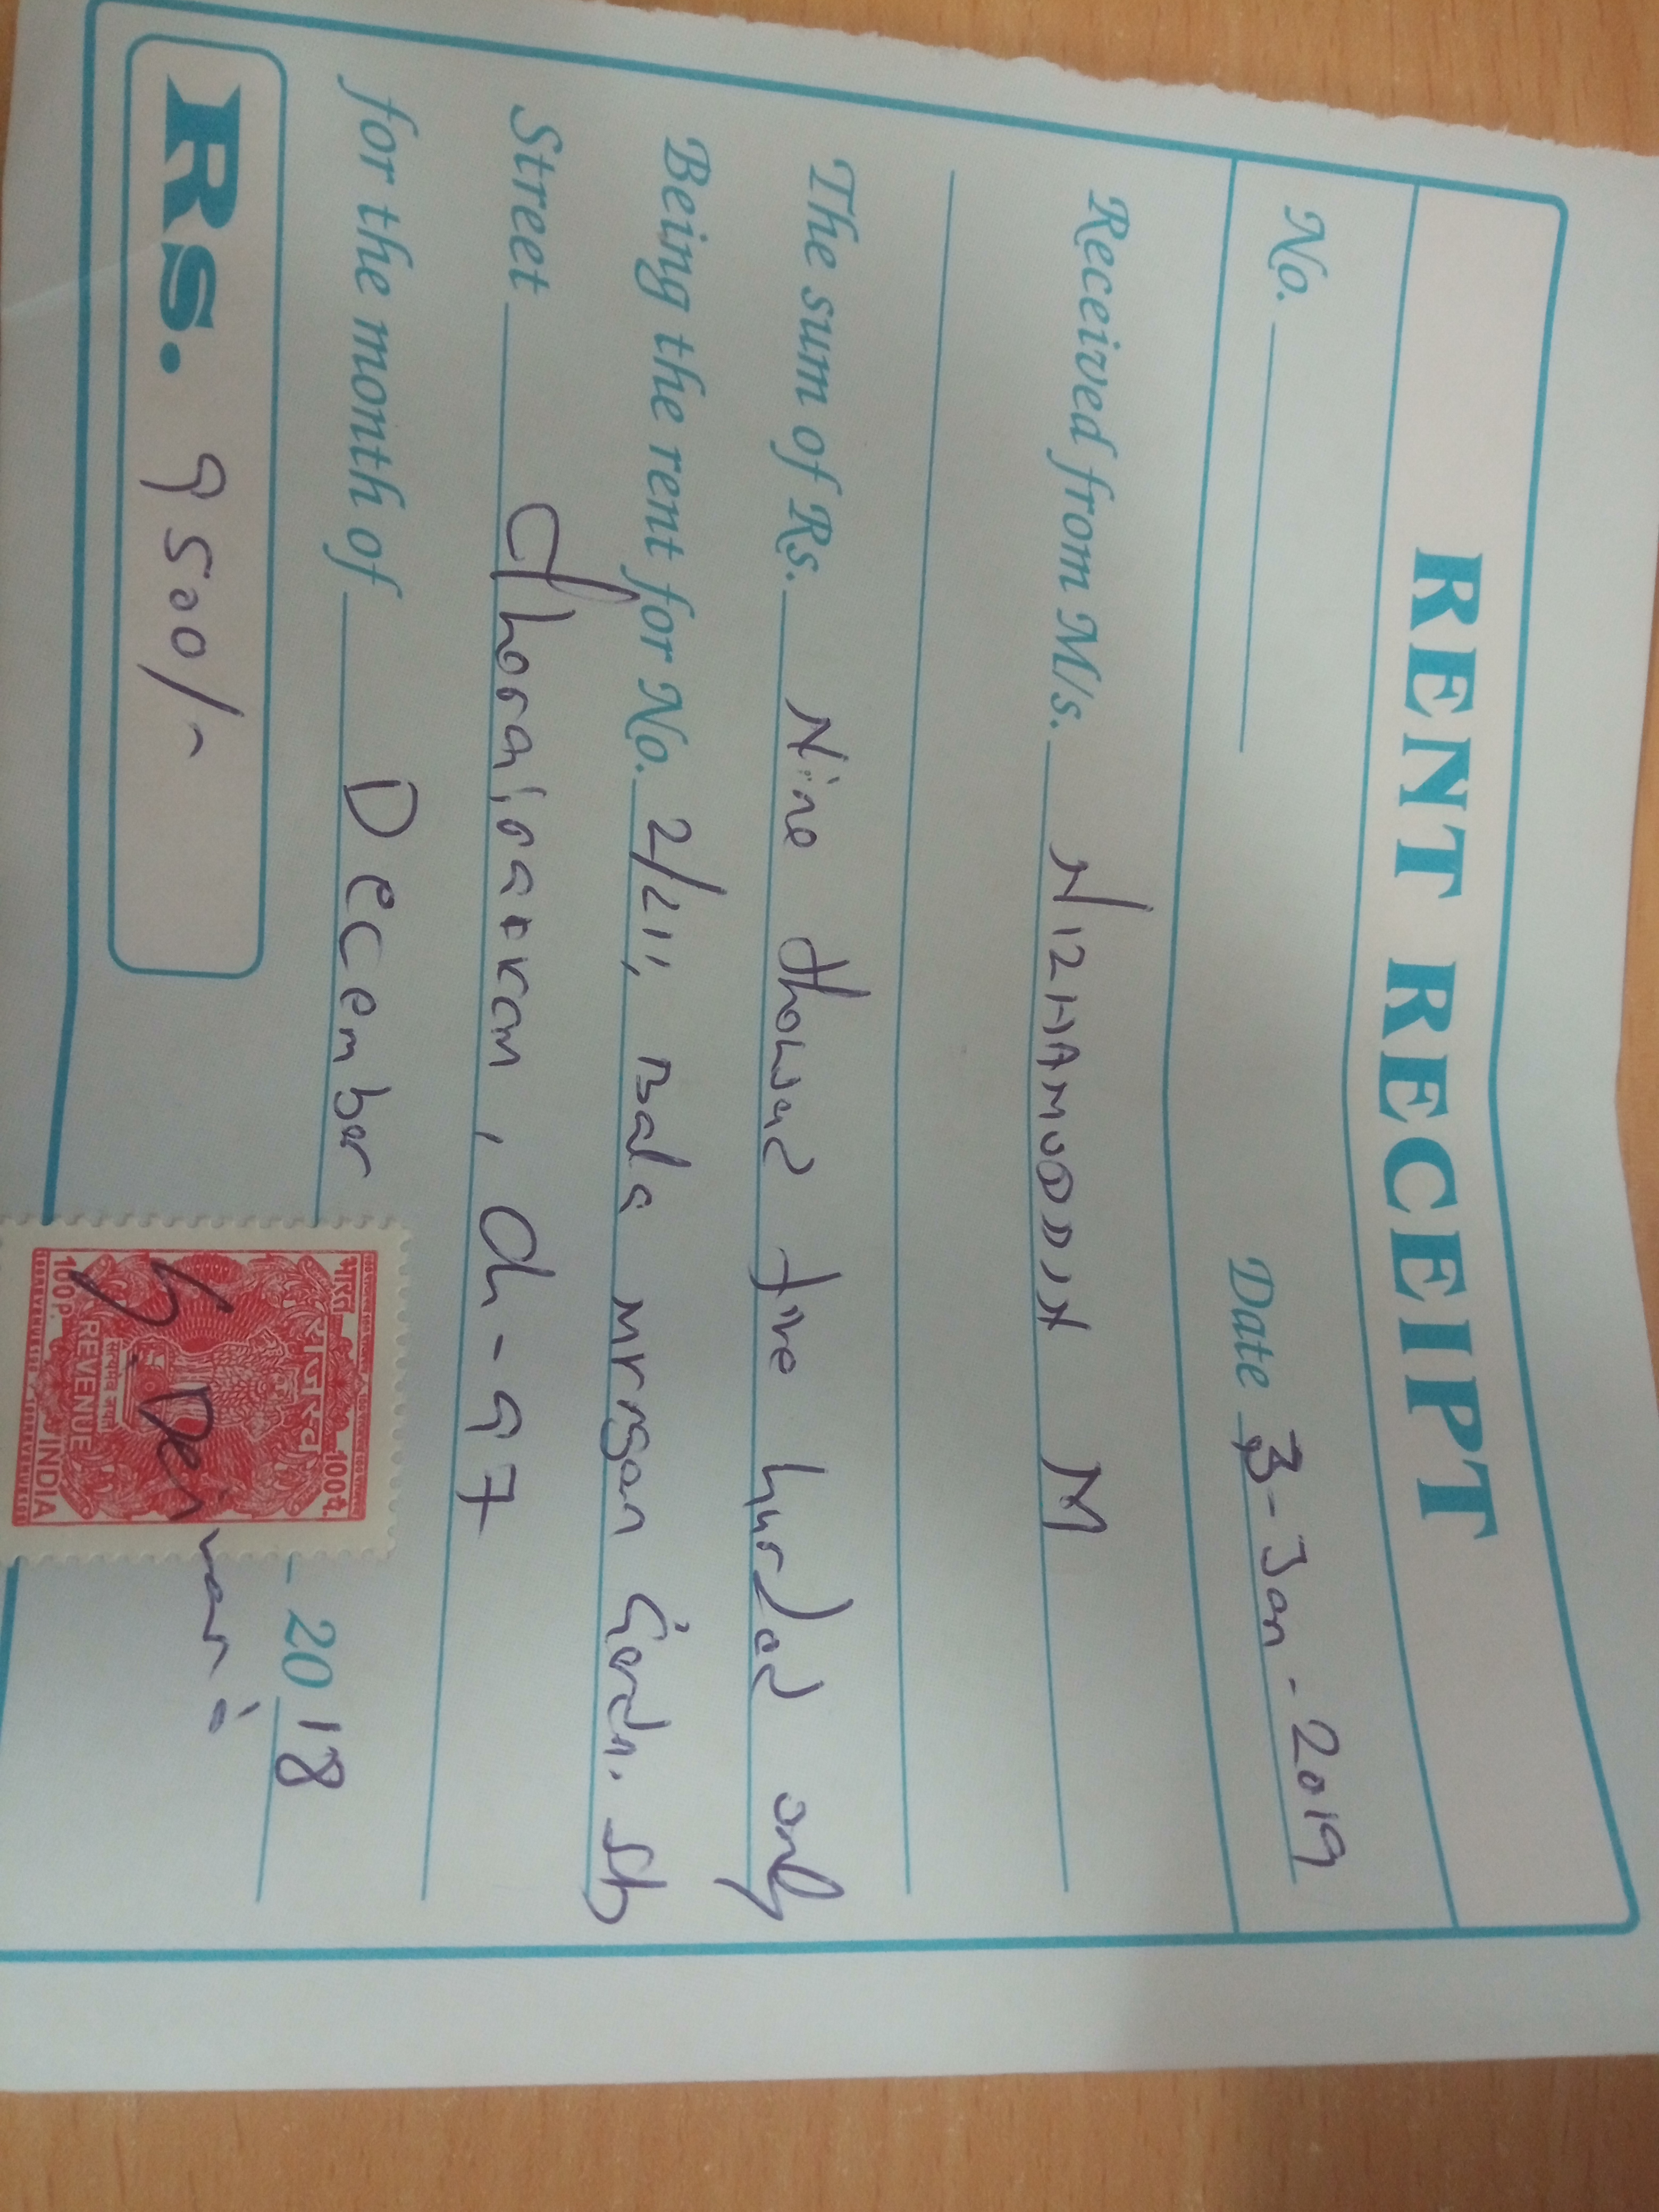 RENT RECEIPT
No. Date 3-Jan-2019
Received from M/s. NIZHAMUDDIN M
The sum of Rs. Nine thousand five hundred only
Being the rent for No. 2/211, Bala murgan Garden. St
Street , Ch-97
for the month of December 2018
Rs. 9500/-
भारत राजस्व 100पै.
सत्यमेव जयते
100P. REVENUE INDIA